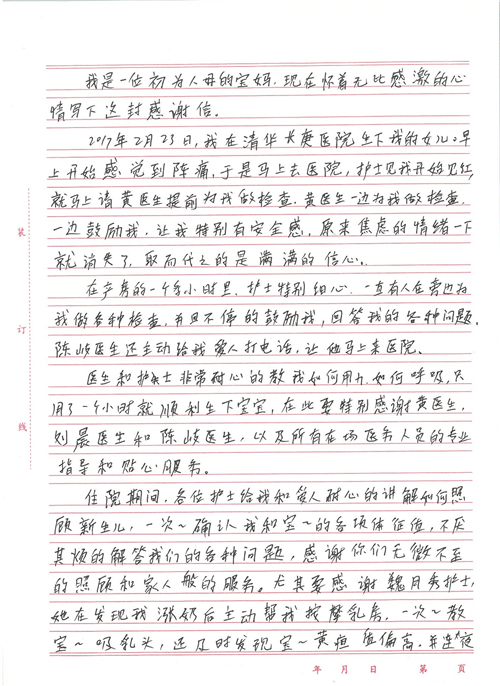 我是一位初为人母的宝妈，现在怀着无比感激的心
情写下这封感谢信。
2017年2月23日，我在清华长庚医院生下我的女儿。早
上开始感觉到阵痛，于是马上去医院，护士见我开始见红，
就马上请黄医生提前为我做检查，黄医生一边为我做检查，
一边鼓励我，让我特别有安全感，原来焦虑的情绪一下
就消失了，取而代之的是满满的信心。
在产房的一个多小时里，护士特别细心，一直有人在旁边为
我做各种检查，并且不停的鼓励我，回答我的各种问题，
陈岐医生还主动给我爱人打电话，让他马上来医院。
医生和护士非常耐心的教我如何用力，如何呼吸，只
用了一个小时就顺利生下宝宝，在此要特别感谢黄医生，
刘晨医生和陈岐医生，以及所有在场医务人员的专业
指导和贴心服务。
住院期间，各位护士给我和爱人耐心的讲解如何照
顾新生儿，一次~确认我和宝~的各项体征值，不厌
其烦的解答我们的各种问题，感谢你们无微不至
的照顾和家人般的服务。尤其要感谢魏月秀护士，
她在发现我涨奶后主动帮我按摩乳房，一次~教
宝~吸乳头，还及时发现宝~黄疸值偏高，并连夜
装
订
线
年 月 日 第 页